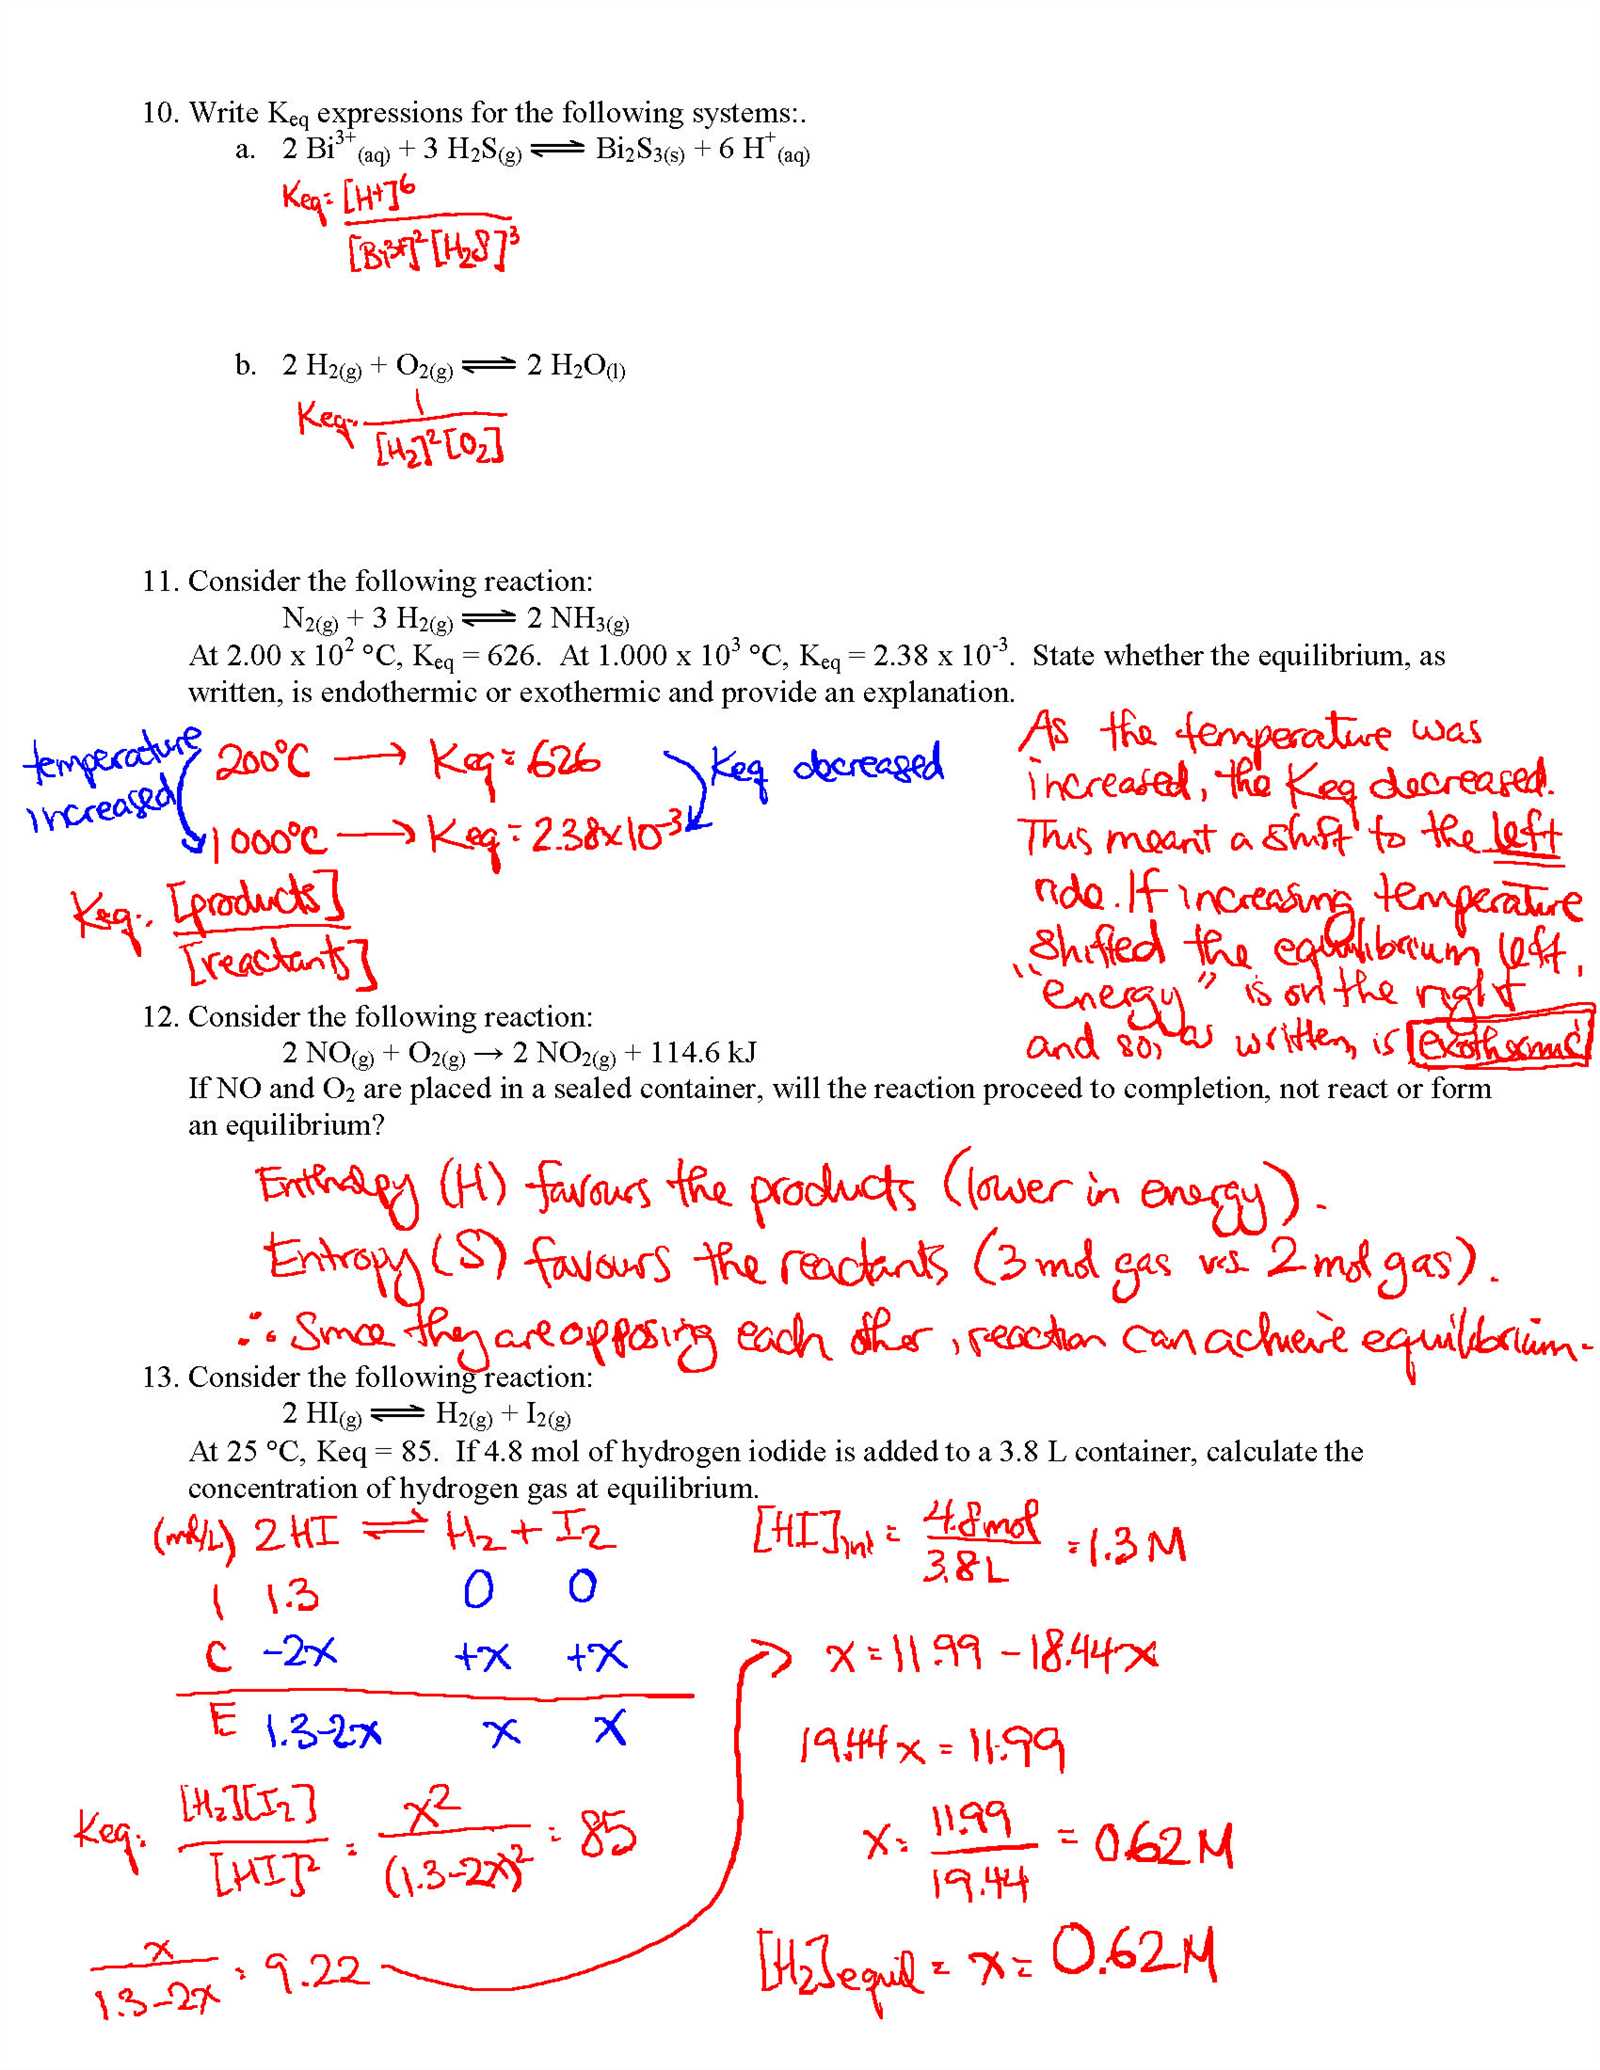 10. Write Keq expressions for the following systems:.
a. 2 Bi³⁺(aq) + 3 H₂S(g) ⇌ Bi₂S₃(s) + 6 H⁺(aq)
Keq = [H+]⁶
[Bi³⁺]² [H₂S]³
b. 2 H₂(g) + O₂(g) ⇌ 2 H₂O(l)
Keq = 1
[H₂]² [O₂]
11. Consider the following reaction:
N₂(g) + 3 H₂(g) ⇌ 2 NH₃(g)
At 2.00 x 10² °C, Keq = 626. At 1.000 x 10³ °C, Keq = 2.38 x 10⁻³. State whether the equilibrium, as
written, is endothermic or exothermic and provide an explanation.
temperature
increased
200°C → Keq = 626
1000°C → Keq = 2.38x10⁻³
Keq decreased
Keq = [products]
[reactants]
As the temperature was
increased, the Keq decreased.
This meant a shift to the left
side. If increasing temperature
shifted the equilibrium left,
"energy" is on the right
and so, as written, is exothermic
12. Consider the following reaction:
2 NO(g) + O₂(g) → 2 NO₂(g) + 114.6 kJ
If NO and O₂ are placed in a sealed container, will the reaction proceed to completion, not react or form
an equilibrium?
Enthalpy (H) favours the products (lower in energy).
Entropy (S) favours the reactants (3 mol gas vs. 2 mol gas).
∴ Since they are opposing each other, reaction can achieve equilibrium.
13. Consider the following reaction:
2 HI(g) ⇌ H₂(g) + I₂(g)
At 25 °C, Keq = 85. If 4.8 mol of hydrogen iodide is added to a 3.8 L container, calculate the
concentration of hydrogen gas at equilibrium.
(mol/L) 2HI ⇌ H₂ + I₂
I 1.3 0 0
C -2x +x +x
E 1.3-2x x x
Keq = [H₂][I₂] / [HI]² = x² / (1.3-2x)² = 85
x / 1.3-2x = 9.22
[HI]int = 4.8mol / 3.8L = 1.3M
x = 11.99 - 18.44x
19.44x = 11.99
x = 11.99 / 19.44 = 0.62M
[H₂]equil = x = 0.62M